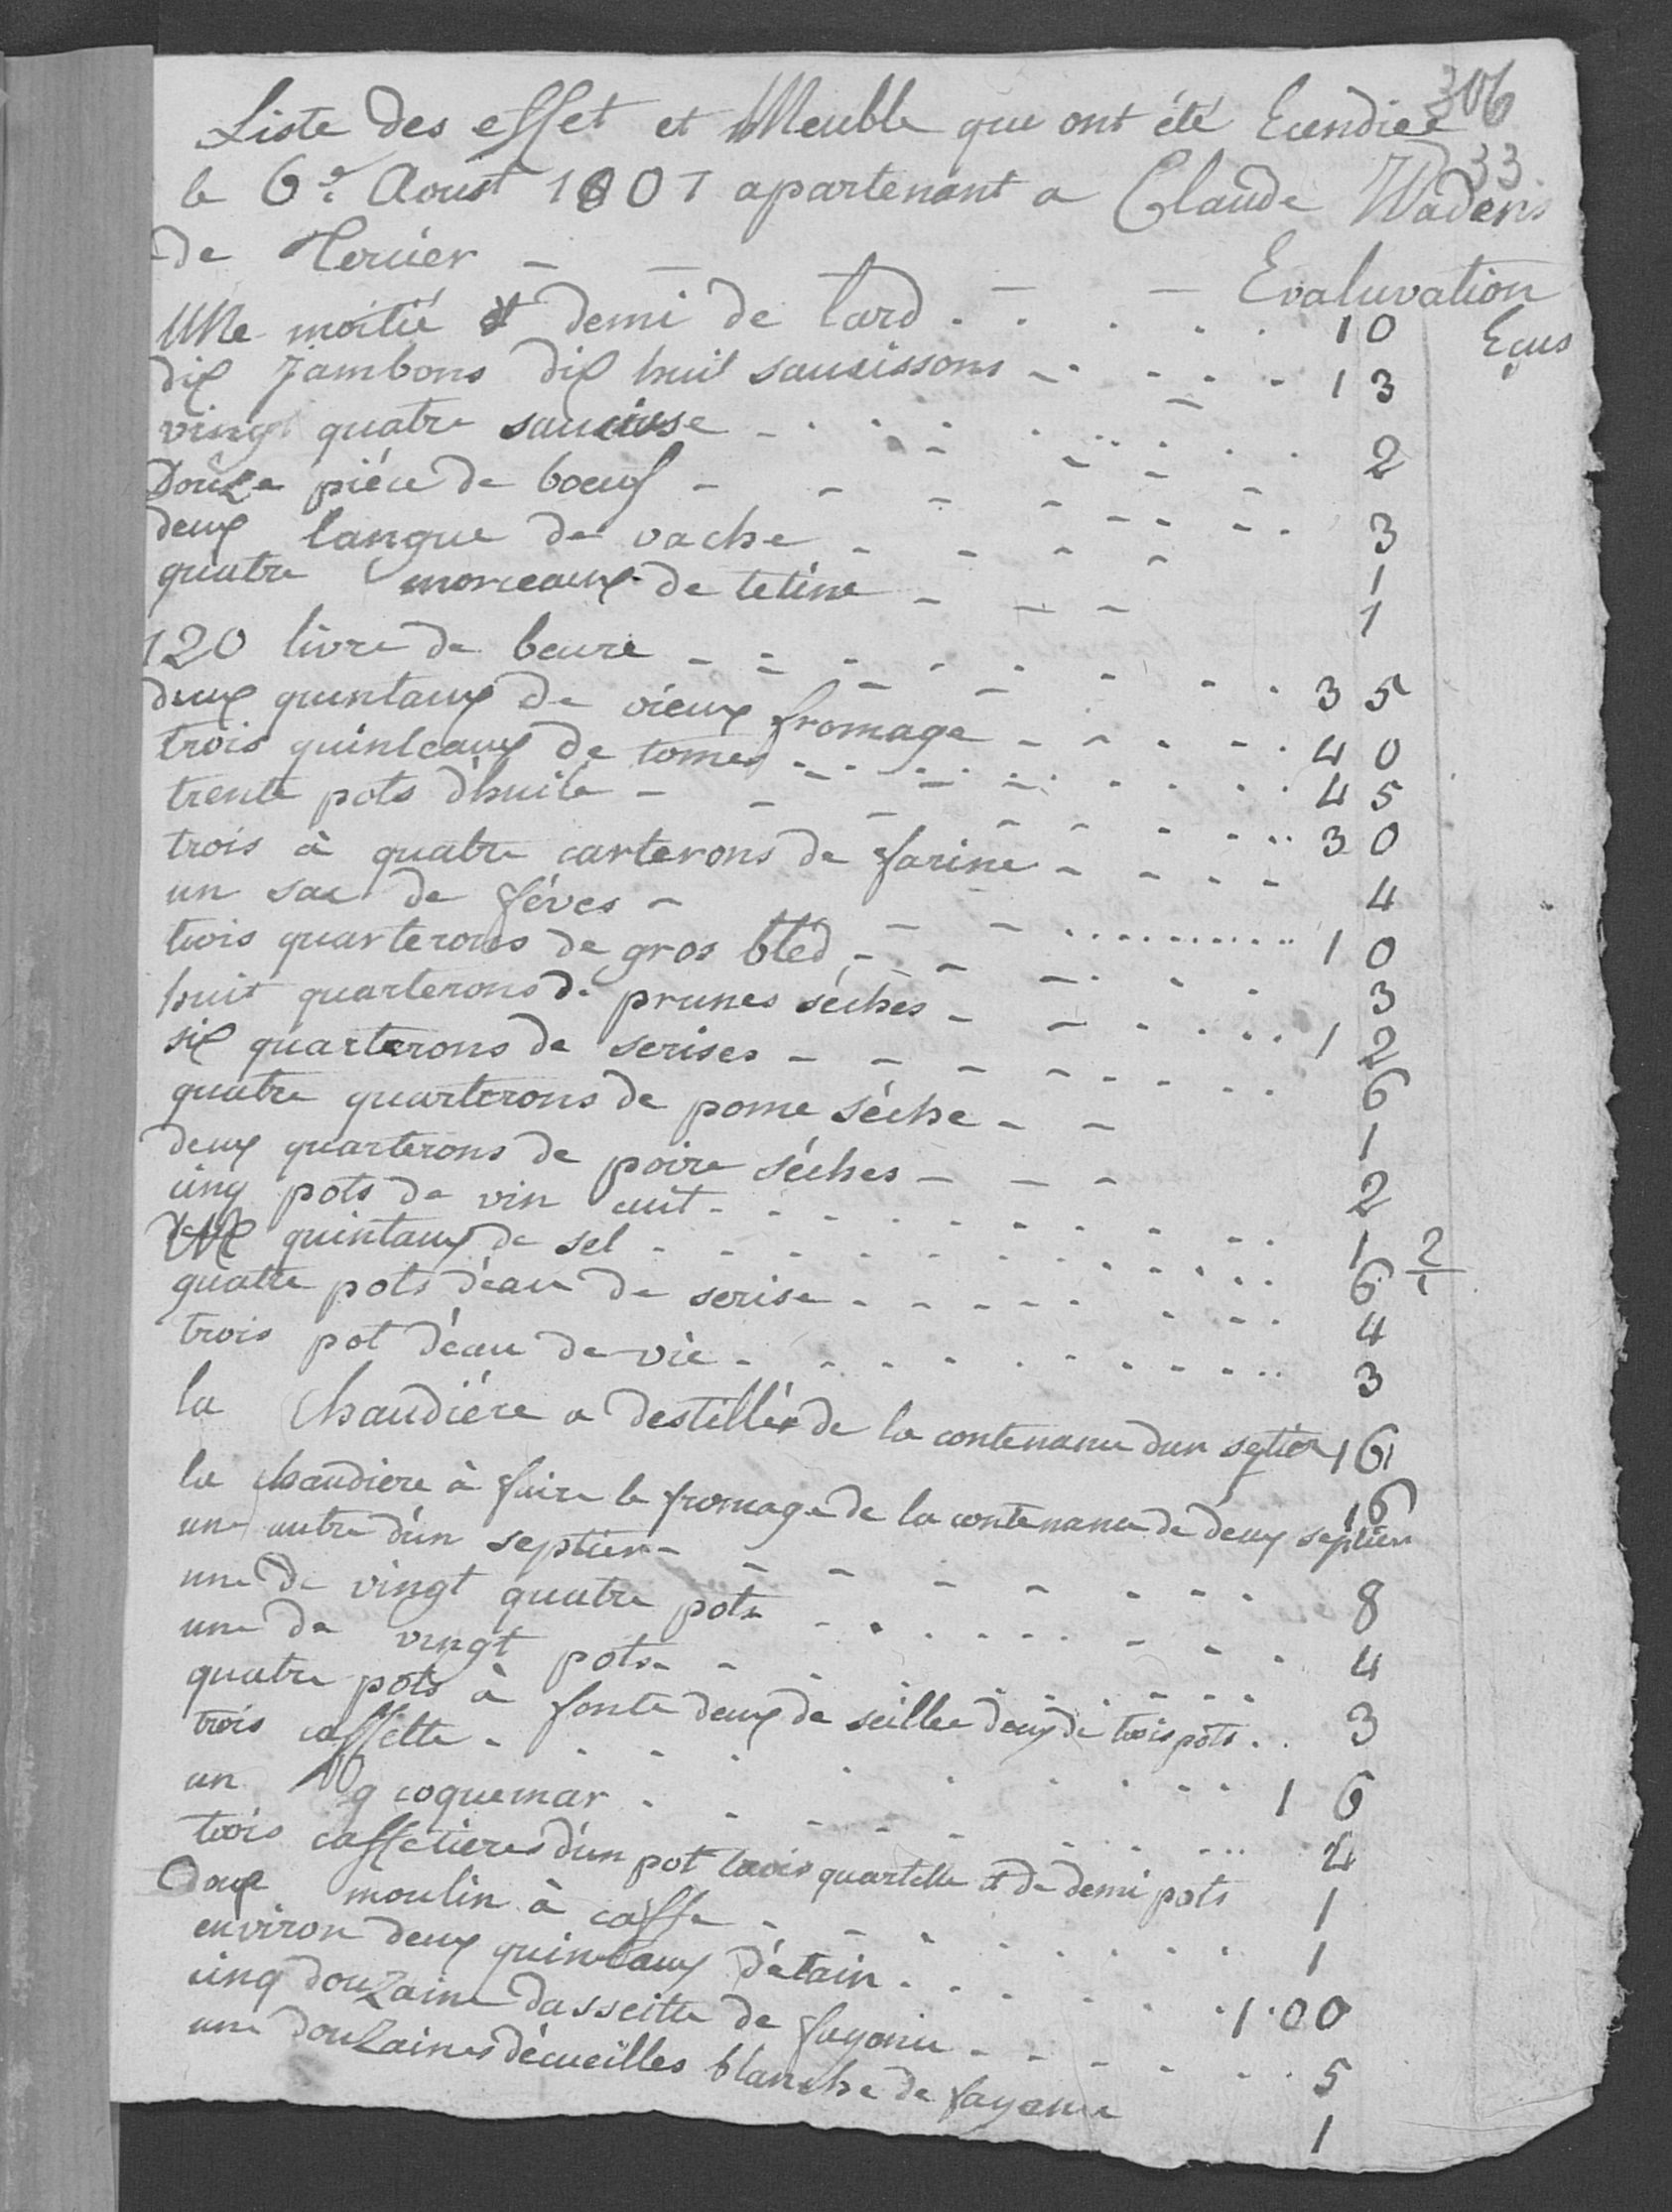 306
33
Liste des effet et Meuble que ont été
le 6e Aoust 1801 apartenant a Claude Waderis
de Tercier - - - - Evaluvation
Ecus
Une moitié et demi de lard 10
dix Jambons dix huit saucissons 13
vingt quatre saucisse 2
Douze piéce de boeuf 3
deux langue de vache 1
quatre morceaux de tetine 1
120 livre de beure 35
deux quintaux de vieux fromage 40
trois quinteaux de tomes 45
trente pots d'huile 30
trois à quatre carterons de farine 4
un sac de féves 10
trois quarterons de gros bled 3
huit quarterons de prunes séches 12
six quarterons de serises 6
quatre quarterons de pome séche 1
deux quarterons de poire séches 2
cinq pots de vin cuit 1 2/1
quintaux de sel 6
quatre pots d'eau de serise 4
trois pot d'eau de vie 3
la Chaudiére a destillér de la contenance dun septier 16
la chaudiere à faire le fromage de la contenance de deux septier 16
une autre d'un septier 8
une de vingt quatre pots 4
une de vingt pots 3
quatre pots à fonte deux de seillee deux de trois pots 16
trois caffette 2
un coquemar 1
trois caffetieres d'un pot trois quartelle et de demi pots 1
moulin à caffe
environ deux quintaux d'étain 100
cinq douzaine dasseitte de fayance 5
une douzaines décueilles blanche de fayance 1